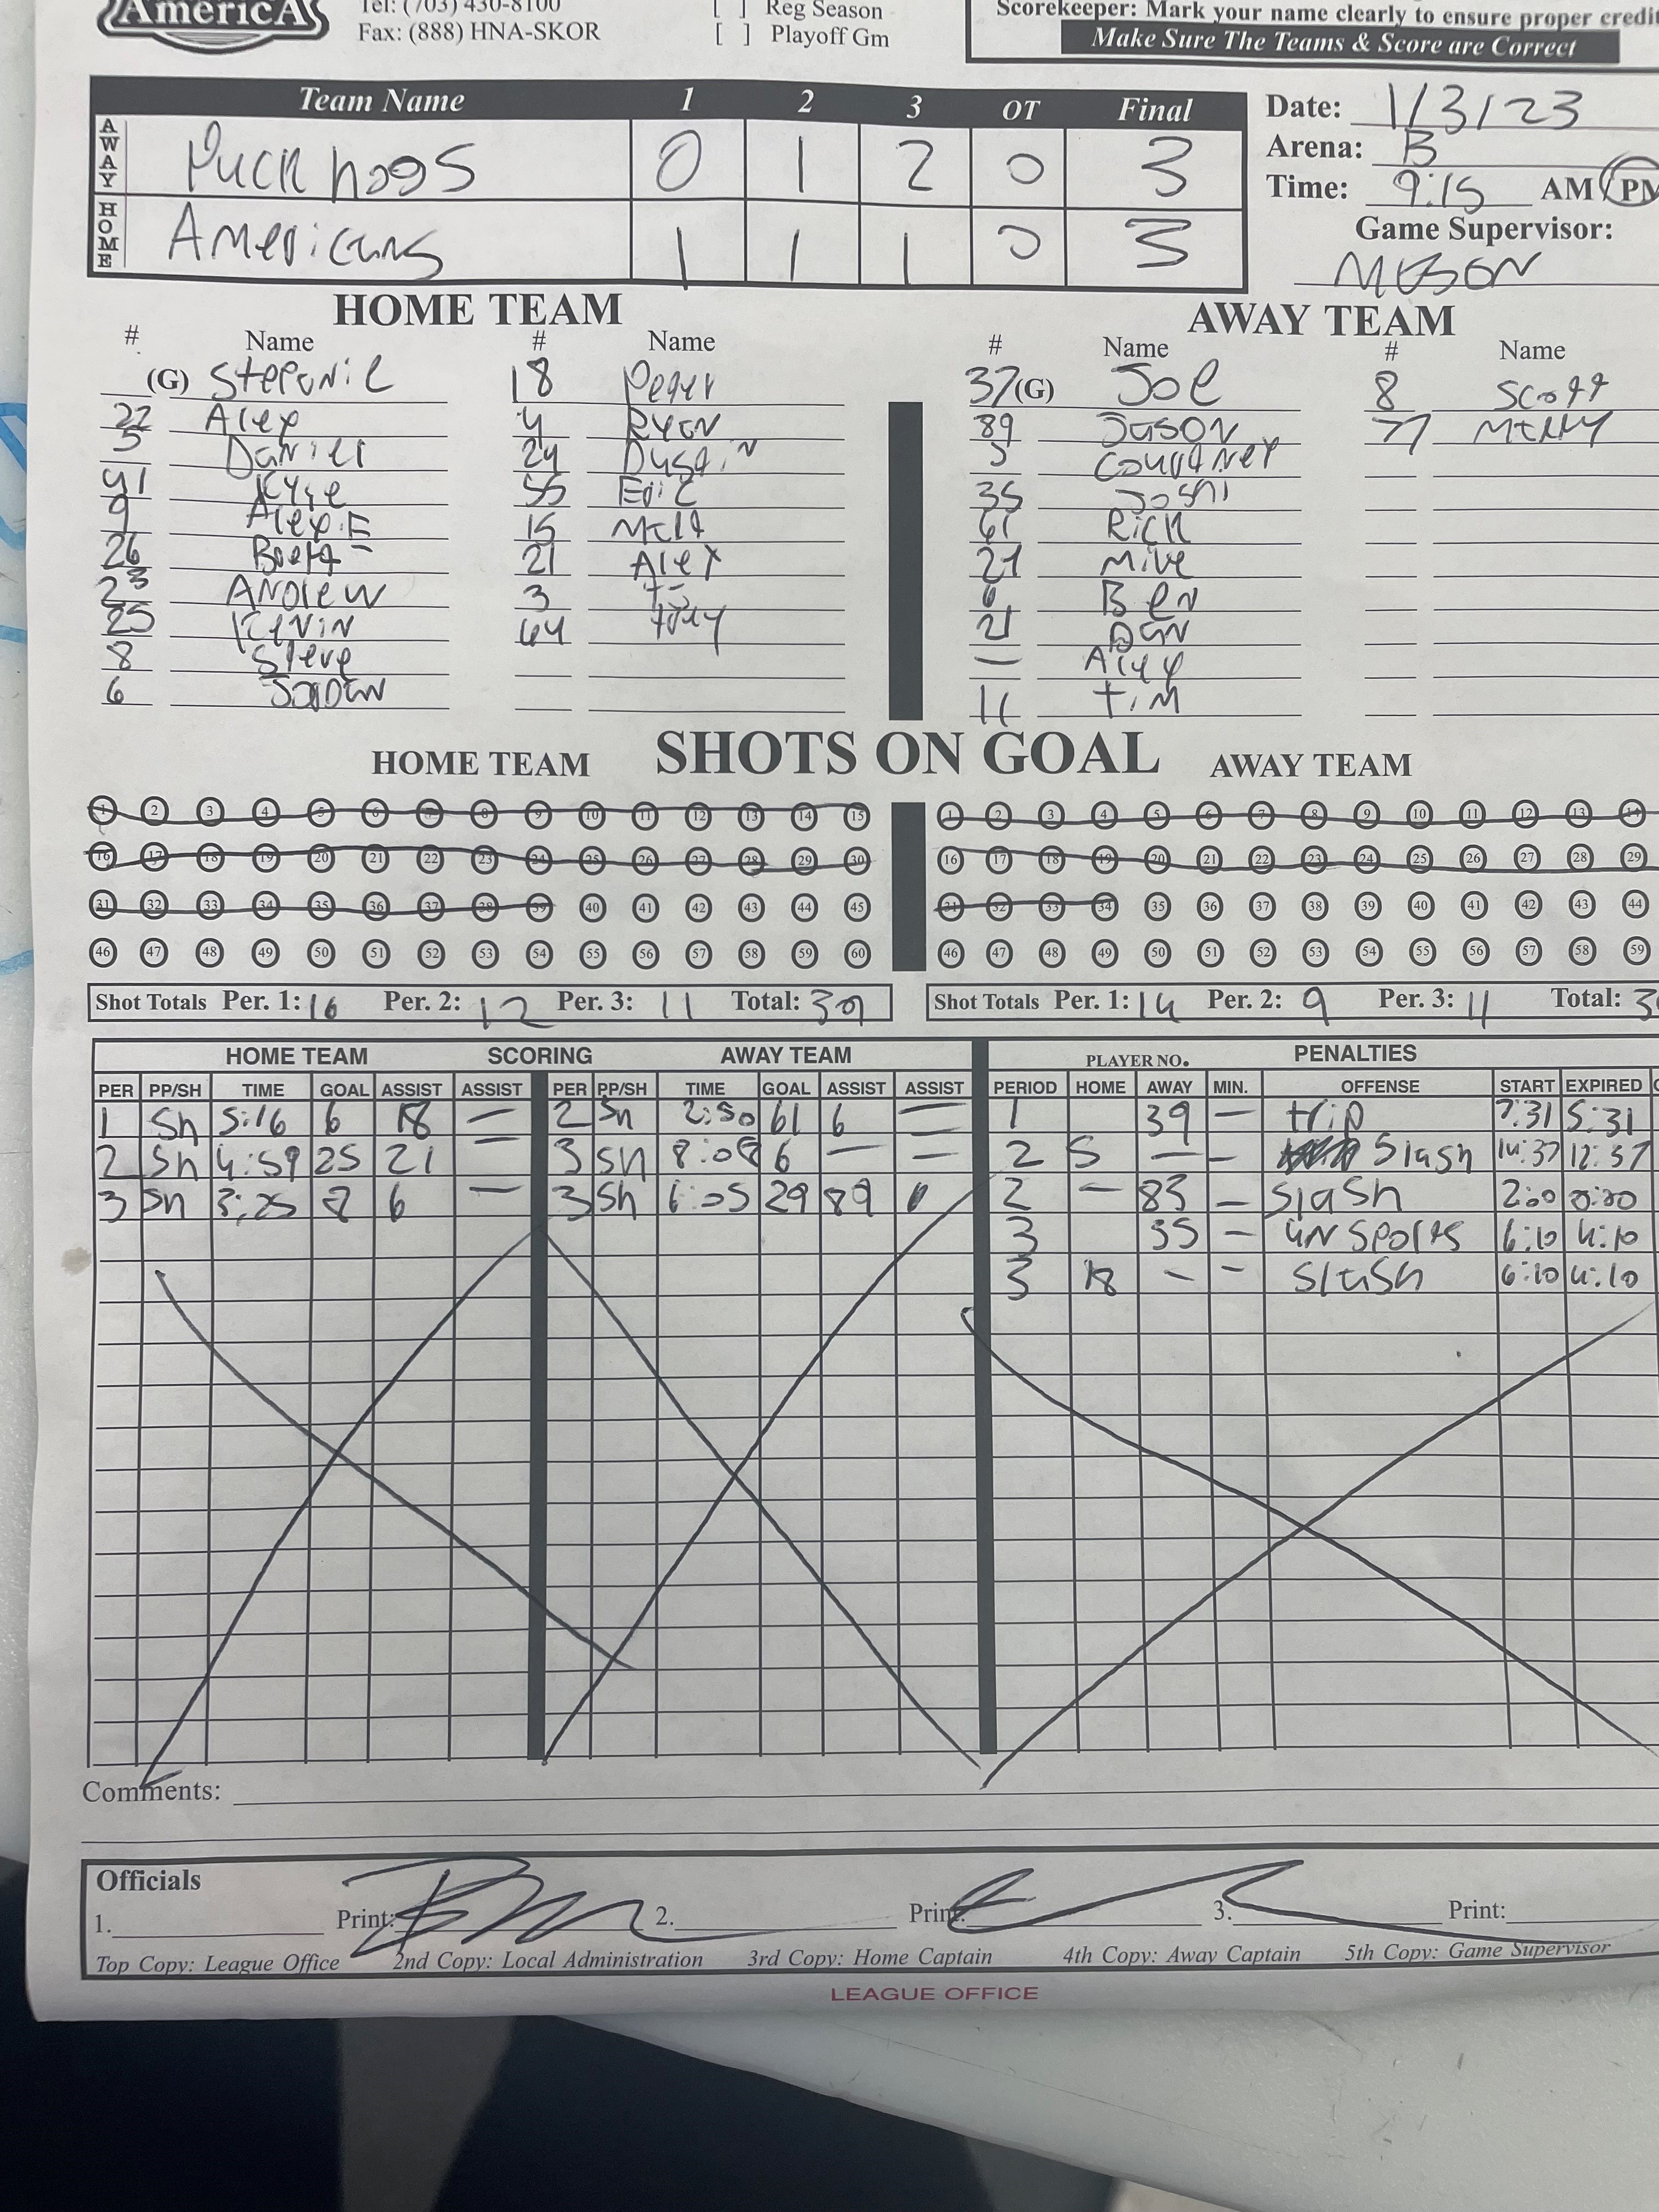 AmericA
Tel: (703) 430-8100
Fax: (888) HNA-SKOR
[ ] Reg Season
[ ] Playoff Gm
Scorekeeper: Mark your name clearly to ensure proper credit
Make Sure The Teams & Score are Correct
Team Name 1 2 3 OT Final
AWAY Puck hogs 0 1 2 0 3
HOME Americans 1 1 1 0 3
Date: 1/3/23
Arena: B
Time: 9:15 AM PM
Game Supervisor:
MASON
HOME TEAM
# Name # Name
(G) 18
22 Alex 4 Ryan
5 Daniel 24 Dustin
41 Kyle 55 Eric
9 Alex.F 15 Matt
26 Brett 21 Alex
23 Andrew 3 TJ
25 Kevin 44
8 Steve
6
AWAY TEAM
# Name # Name
37 (G) Joe 8 Scott
89 Jason 77
5 Courtney
35 Joshi
61 Rick
Mike
6 Ben
21 Dan
— Alex
11 Tim
SHOTS ON GOAL
HOME TEAM AWAY TEAM
1 2 3 4 5 6 7 8 9 10 11 12 13 14 15 1 2 3 4 5 6 7 8 9 10 11 12 13 14
16 17 18 19 20 21 22 23 24 25 26 27 28 29 30 16 17 18 19 20 21 22 23 24 25 26 27 28 29
31 32 33 34 35 36 37 38 39 40 41 42 43 44 45 31 32 33 34 35 36 37 38 39 40 41 42 43 44
46 47 48 49 50 51 52 53 54 55 56 57 58 59 60 46 47 48 49 50 51 52 53 54 55 56 57 58 59
Shot Totals Per. 1: 16 Per. 2: 12 Per. 3: 11 Total: 39 Shot Totals Per. 1: 14 Per. 2: 9 Per. 3: 11 Total: 3
HOME TEAM SCORING AWAY TEAM
PER PP/SH TIME GOAL ASSIST ASSIST PER PP/SH TIME GOAL ASSIST ASSIST
1 Sh 5:16 6 18 — 2 Sh 2:50 61 6 —
2 Sh 4:59 25 21 — 3 Sh 8:08 6 — —
3 Sh 3:25 8 6 — 3 Sh 6:05 29 89
PLAYER NO. PENALTIES
PERIOD HOME AWAY MIN. OFFENSE START EXPIRED
1 39 — trip 7:31 5:31
2 5 — — Slash 14:37 12:37
2 — 83 — Slash 2:00 0:00
3 35 — unsports 6:10 4:10
3 18 — — Slash 6:10 4:10
Comments:
Officials
1. Print: 2. Print: 3. Print:
Top Copy: League Office 2nd Copy: Local Administration 3rd Copy: Home Captain 4th Copy: Away Captain 5th Copy: Game Supervisor
LEAGUE OFFICE